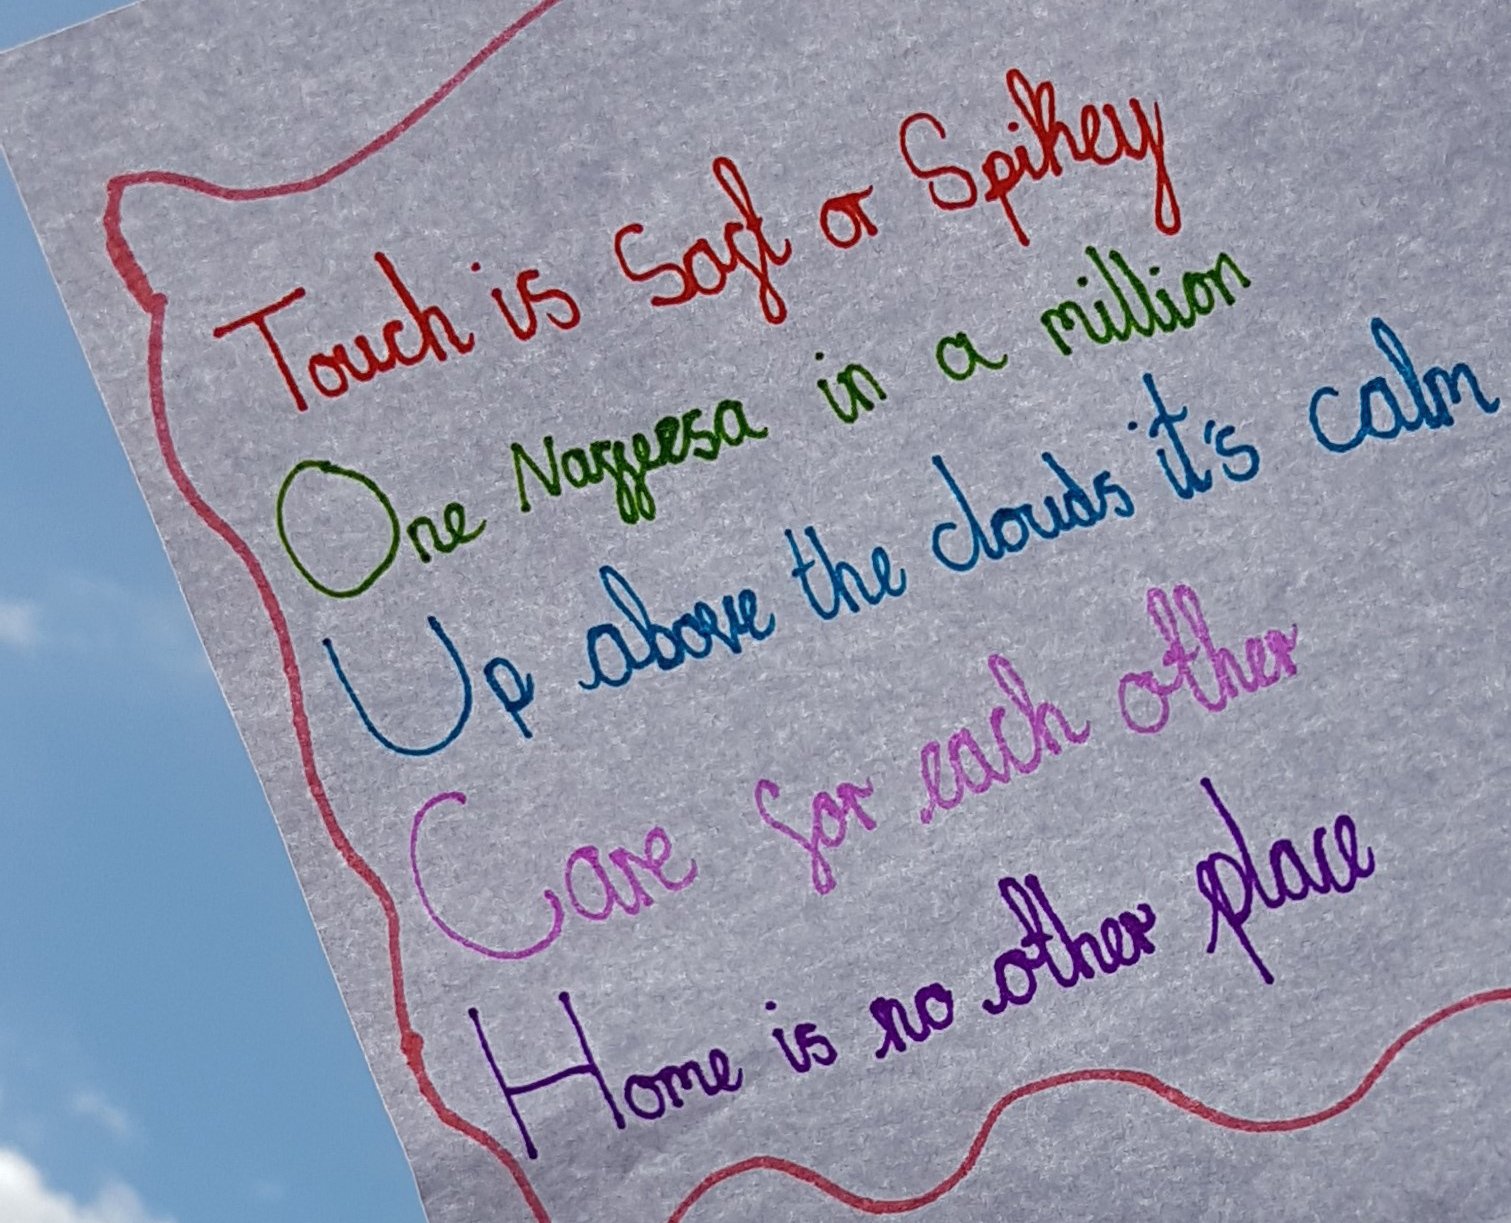 Touch is Soft or Spikey
One Nazeesa in a million
Up above the clouds it's calm
Care for each other
Home is no other place